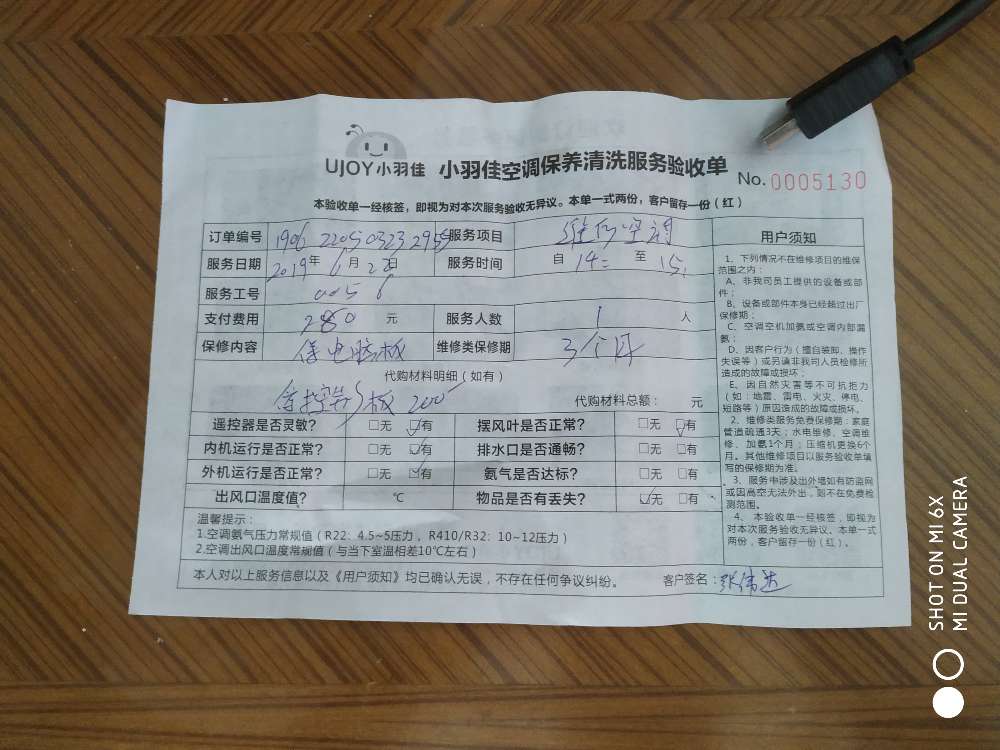 UJOY小羽佳 小羽佳空调保养清洗服务验收单 No. 0005130
本验收单一经核签，即视为对本次服务验收无异议。本单一式两份，客户留存一份（红）
订单编号 服务项目 维修空调
服务日期 2019年6月22日 服务时间 自 14: 至 15:
服务工号 0056
支付费用 280 元 服务人数 1 人
保修内容 保电脑板 维修类保修期 3个月
代购材料明细（如有）
板 200 代购材料总额： 元
遥控器是否灵敏？ □无 □有 摆风叶是否正常？ □无 □有
内机运行是否正常？ □无 □有 排水口是否通畅？ □无 □有
外机运行是否正常？ □无 □有 氨气是否达标？ □无 □有
出风口温度值？ ℃ 物品是否有丢失？ □无 □有
温馨提示：
1.空调氨气压力常规值（R22：4.5~5压力，R410/R32：10~12压力）
2.空调出风口温度常规值（与当下室温相差10℃左右）
本人对以上服务信息以及《用户须知》均已确认无误，不存在任何争议纠纷。 客户签名：张伟达
用户须知
1、下列情况不在维修项目的维保
范围之内：
A、非我司员工提供的设备或部
件；
B、设备或部件本身已经超过出厂
保修期；
C、空调空机加氨或空调内部漏
氨；
D、因客户行为（擅自装卸、操作
失误等）或另请非我司人员检修所
造成的故障或损坏；
E、因自然灾害等不可抗拒力
（如：地震、雷电、火灾、停电、
短路等）原因造成的故障或损坏。
2、维修类服务免费保修期：家庭
管道疏通3天；水电维修、空调维
修、加氨1个月；压缩机更换6个
月。其他维修项目以服务验收单填
写的保修期为准。
3、服务中涉及出外墙如有防盗网
或因高空无法外出，则不在免费检
测范围。
4、本验收单一经核签，即视为
对本次服务验收无异议。本单一式
两份，客户留存一份（红）。
SHOT ON MI 6X
MI DUAL CAMERA